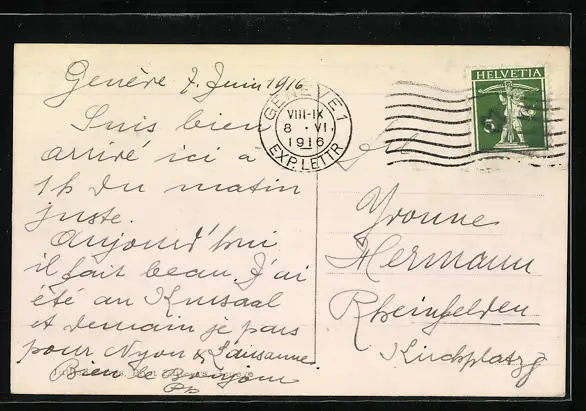 Genève 7. Juin 1916
Suis bien
arrivé ici a
1h du matin
juste.
Aujourd'hui
il fait beau. J'ai
été au Kursaal
et demain je pars
pour Nyon & Lausanne.
Bien le Bonjour
GENEVE 1
VIII-IX
8 · VI
1916
EXP. LETTR
HELVETIA
5
Yvonne
Hermann
Rheinfelden
Kirchplatz